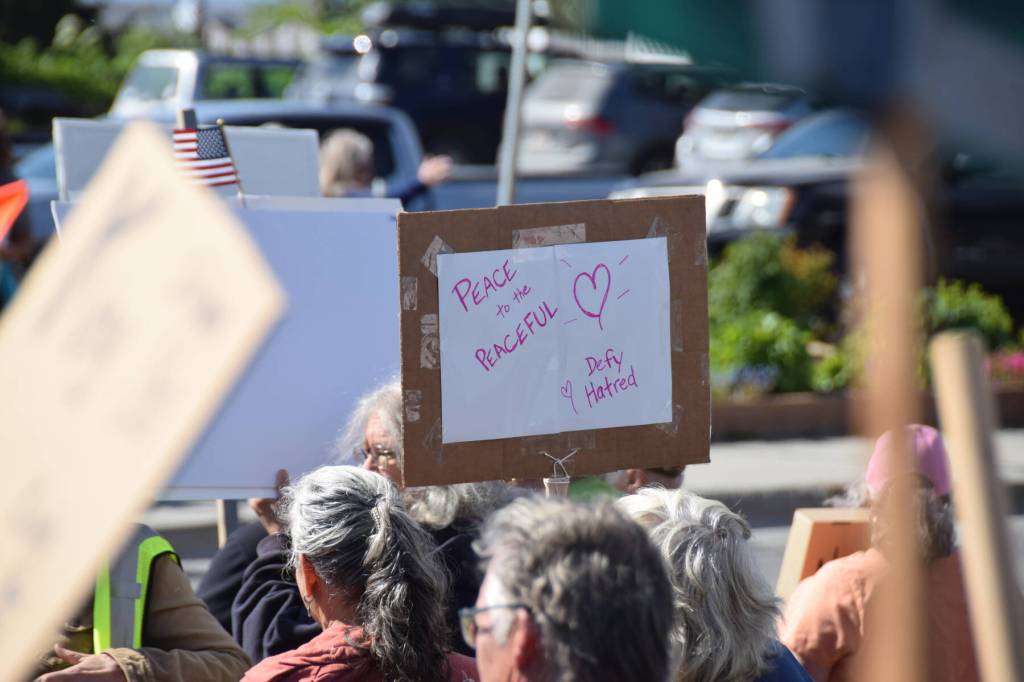 PEACE
to the
PEACEFUL
Defy
Hatred